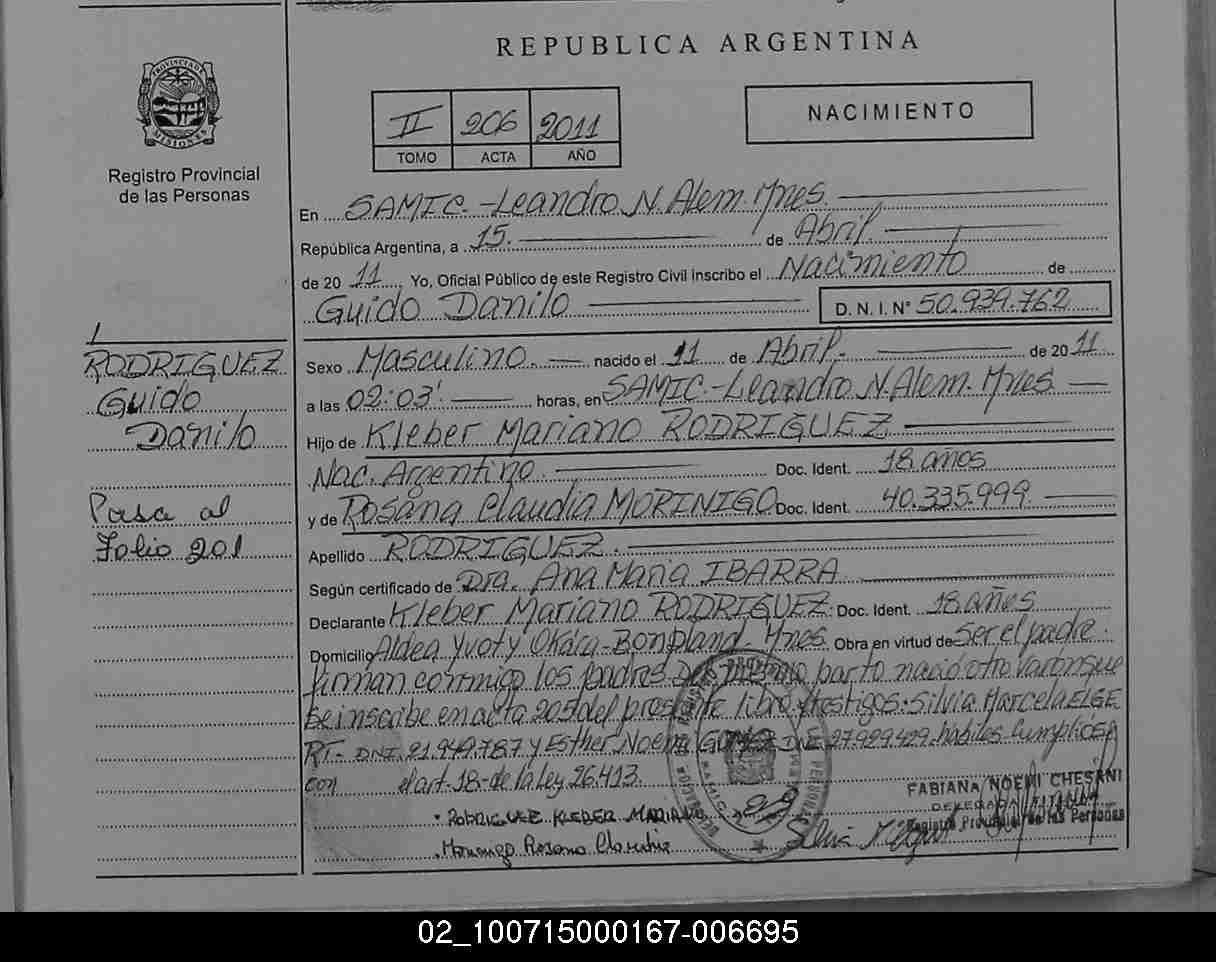 REPUBLICA ARGENTINA
PROVINCIA DE
MISIONES
Registro Provincial
de las Personas
II 206 2011
TOMO ACTA AÑO
NACIMIENTO
En SAMIC.-Leandro N. Alem. Mnes.
República Argentina, a 15. de Abril.
de 20 11. Yo, Oficial Público de este Registro Civil inscribo el Nacimiento de
Guido Danilo D. N. I. N° 50.939.762
1
RODRIGUEZ
Guido
Danilo
Pasa al
Folio 201
Sexo Masculino. nacido el 11 de Abril. de 20 11
a las 02:03' horas, en SAMIC.-Leandro N. Alem. Mnes.
Hijo de Kleber Mariano RODRIGUEZ
Nac. Argentino. Doc. Ident. 18 años
y de Rosana Claudia MORINIGO Doc. Ident. 40.335.999.
Apellido RODRIGUEZ.
Según certificado de Dra. Ana Maria IBARRA
Declarante Kleber Mariano RODRIGUEZ. Doc. Ident. 18 años
Domicilio Aldea Yvoty Okára-Bonpland. Mnes. Obra en virtud de Ser el padre.
Firman conmigo los padres Del mismo parto nació otro varon que
se inscribe en acta 205 del presente libro. testigos: Silvia Marcela ELGE
RT- DNI. 21.949.787 y Esther Noemi DNI. 27.929.429. habiles Cumpliose
con el art-18-de la Ley 26.413.
RODRIGUEZ KLEBER MARIANO
Morinigo Rosana Claudia
Silvia M
FABIANA NOEMI CHESANI
DELEGADA TITULAR
Registro Provincial de las Personas
02_100715000167-006695